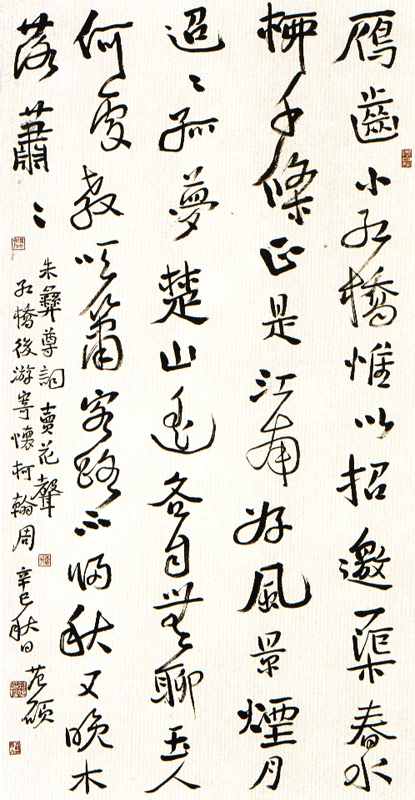 鴈齒小紅橋惟以招邀一渠春水
柳千條正是江南好風景煙月
迢〻孤夢楚山遙各自無聊玉人
何處教吹簫客路不秋又晚木
落蕭〻
朱彝尊詞賣花聲
紅橋後游寄懷柯翰周 辛巳秋日 范碩